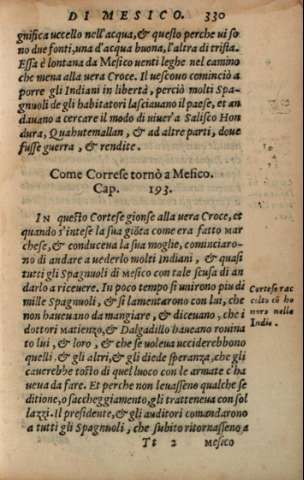 DI MESICO. 330
gnifica uccello nell'acqua, & questo perche ui so
no due fonti, una d'acqua buona, l'altra di trista.
Essa è lontana da Mesico uenti leghe nel camino
che mena alla uera Croce. Il uescouo cominciò a
porre gli Indiani in libertà, perciò molti Spa-
gnuoli de gli habitatori lasciauano il paese, et an
dauano a cercare il modo di uiuer'a Salisco Hon
dura, Quahutemallan, & ad altre parti, doue
fusse guerra, & rendite.
Come Correse tornò a Mesico.
Cap. 193.
IN questo Cortese gionse alla uera Croce, et
quando s'intese la sua giōta come era fatto Mar
chese, & conduceua la sua moghe, cominciaro-
no di andare a uederlo molti Indiani, & quasi
tutti gli Spagnuoli di Mesico con tale scusa di an
darlo a riceuere. In poco tempo si unirono piu di
mille Spagnuoli, & si lamentarono con lui, che
non haueuano da mangiare, & diceuano, che i
dottori Matienzo, & Dalgadillo haueano rouina
to lui, & loro, & che se uoleua ucciderebbono
quelli & gli altri, & gli diede speranza, che gli
cauerebbe tosto di quel luoco con le armate c'ha
ueua da fare. Et perche non leuasseno qualche se
ditione, o saccheggiamento, gli tratteneua con sol
lazzi. Il presidente, & gli auditori comandarono
a tutti gli Spagnuoli, che subito ritornasseno a
Tt 2 Mesico
Cortese rac
colto cō ho
nore nella
India.